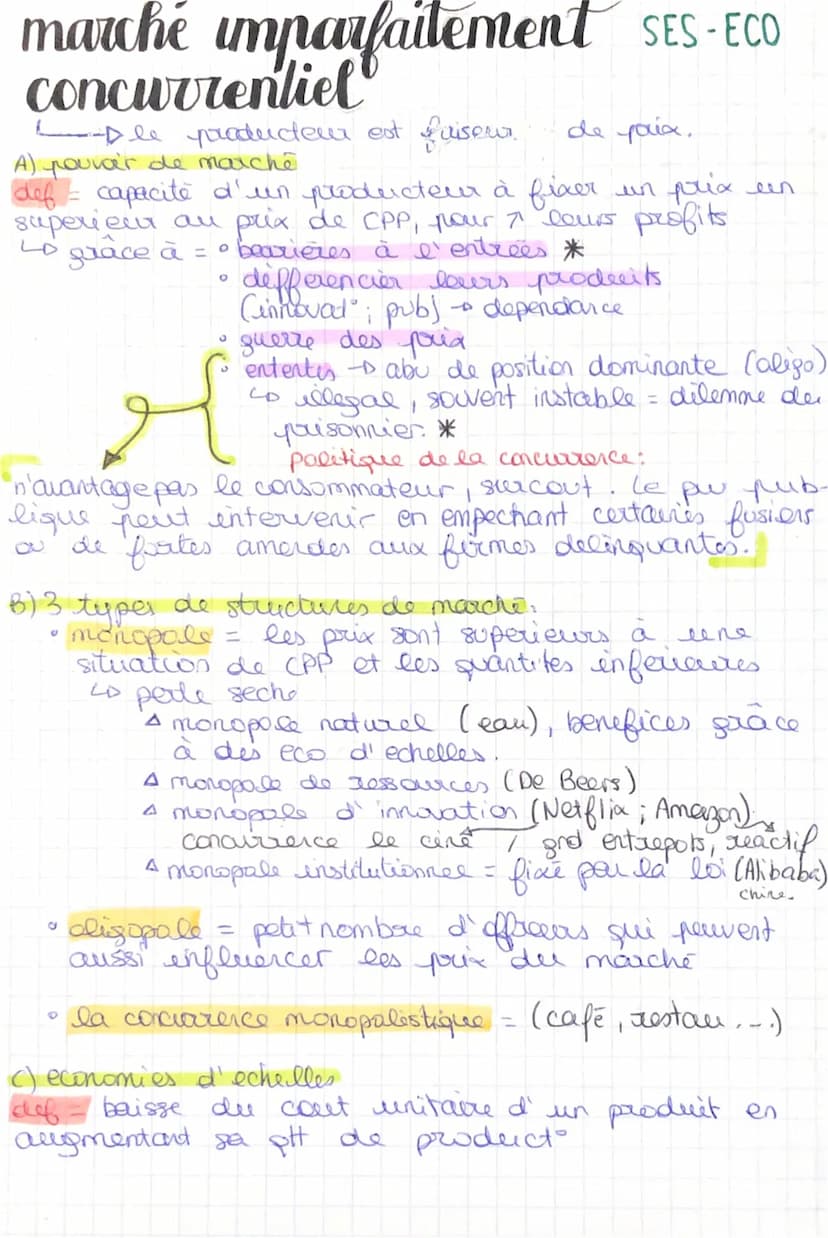 marché imparfaitement SES-ECO
concurrentiel
↳ le producteur est faiseur de prix.
A) pouvoir de marché
def = capacité d'un producteur à fixer un prix en
superieur au prix de CPP, pour ↗ leurs profits
↳ grâce à = • barrières à l'entrées *
• différencier leurs produits
(innovat°; pub) → dependance
• guerre des prix
• ententes → abu de position dominante (oligo)
↳ illegal, souvent instable = dilemne du
prisonnier. *
politique de la concurrence:
n'avantage pas le consommateur, surcout. Le pv pub-
lique peut intervenir en empechant certaines fusions
ou de fortes amendes aux firmes delinquantes.
B) 3 types de structures de marché:
• monopole = les prix sont superieurs à une
situation de CPP et les quantites inferieures
↳ perte seche
△ monopole naturel (eau), benefices grâce
à des eco d'echelles.
△ monopole de ressources (De Beers)
△ monopole d'innovation (Netflix; Amazon)
concurrence le ciné / grd entrepots, réactif
△ monopole institutionnel = fixé par la loi (Alibaba)
chine.
• oligopole = petit nombre d'offreurs qui peuvent
aussi influencer les prix du marché
• la concurrence monopolistique = (café, restau...)
C) economies d'echelles
def = baisse du cout unitaire d'un produit en
augmentant sa qtt de product°